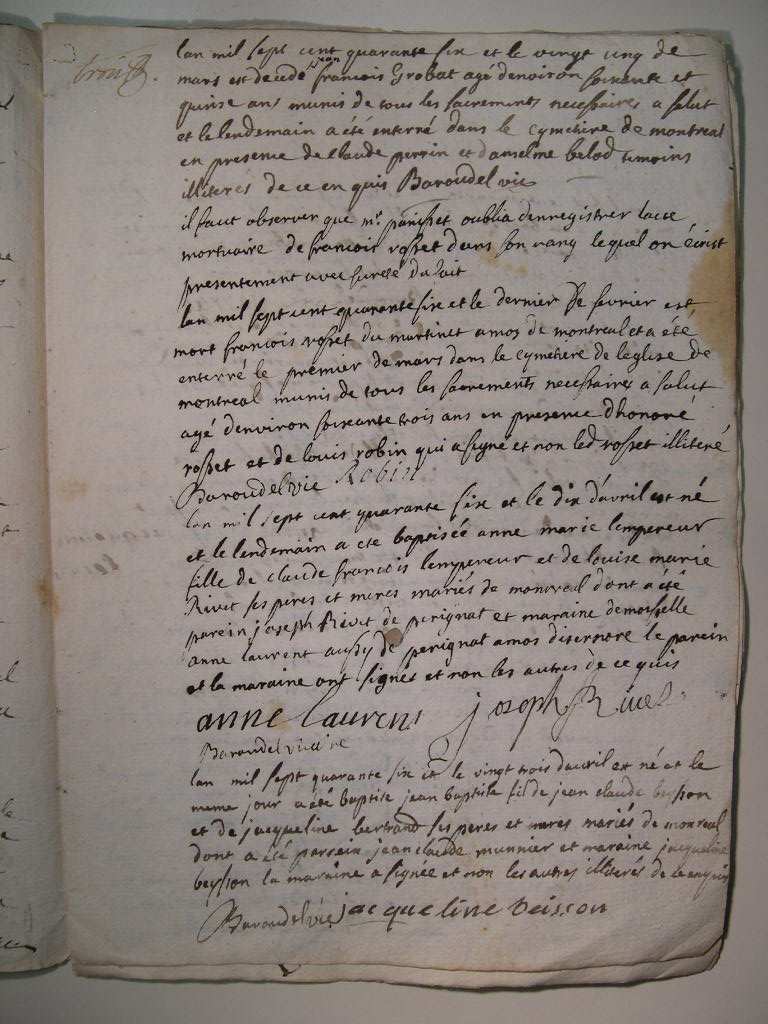 trois
lan mil sept cent quarante six et le vingt cinq de
mars est decedé jean francois Grobat agé denviron soixente et
quinse ans munis de tous les sacrements necessaires a salut
et le lendemain a été enterné dans le cymetiere de montreal
en presence de Claude perrin et danselme belod temoins
illiteres de ce en quis Baroudel vic
il faut observer que mr parisset oublia denregistrer lacte
mortuaire de francois rosset dans son rang lequel on écrit
presentement avec sureté du fait
lan mil sept cent quarante six et le dernier de fevrier est
mort francois rosset du martinet amos de montreal et a été
enterré le premier de mars dans le cymetiere de leglise de
montreal munis de tous les sacrements necessaires a salut
agé denviron soixante trois ans en presence dhonoré
rosset et de louis robin qui a signé et non led rosset illiteré
Baroudel vic Robin
lan mil sept cent quarante six et le dix davril est né
et le lendemain a eté baptisée anne marie lempereur
fille de claude francois lempereur et de louise marie
Rivet ses peres et meres mariés de montreal dont a été
parein joseph Rivet de perignat et maraine demoiselle
anne laurent aussy de perignat amos disernore le parein
et la maraine ont signés et non les autres de ce quis
anne laurens joseph Rivet
Baroudel vicaire
lan mil sept quarante six et le vingt trois davril est né et le
meme jour a été baptisé jean baptiste fil de jean claude beysson
et de jacqueline bertrand ses peres et meres mariés de montreal
dont a été parrein jean claude munnier et maraine jacqueline
beysson la maraine a signée et non les autres illiterés de ce enquis
Baroudel vic jacqueline beisson